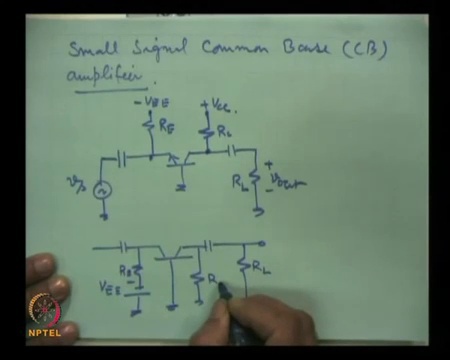 Small Signal Common Base (CB)
amplifier.
- VEE
+ VCC
RE
RC
+
RL
Vout
-
vs
RE
VEE -
R
RL
NPTEL